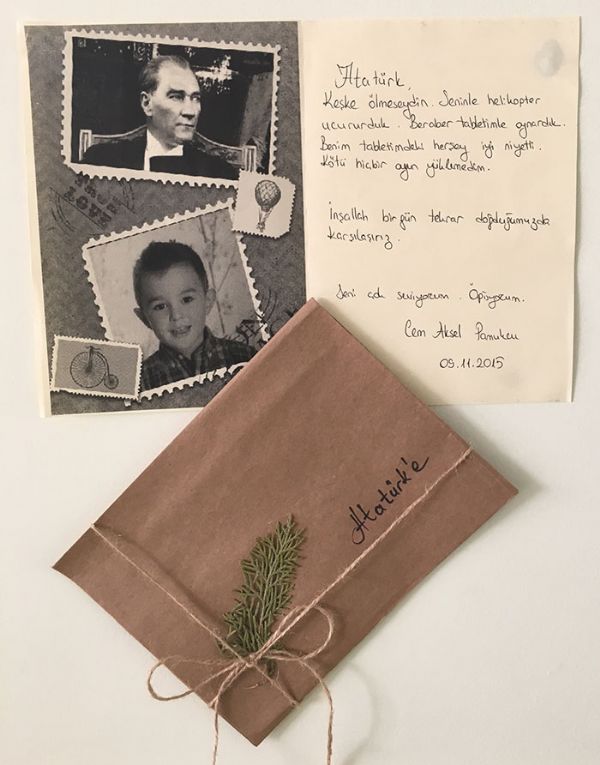 Atatürk,
Keşke ölmeseydin. Seninle helikopter
uçururduk. Beraber tabletimle oynardık.
Benim tabletimdeki herşey iyi niyetli.
Kötü hiçbir oyun yüklemedim.
İnşallah bir gün tekrar doğduğumuzda
karşılaşırız.
Seni çok seviyorum. Öpüyorum.
Cem Aksel Pamukcu
09.11.2015
Atatürk'e